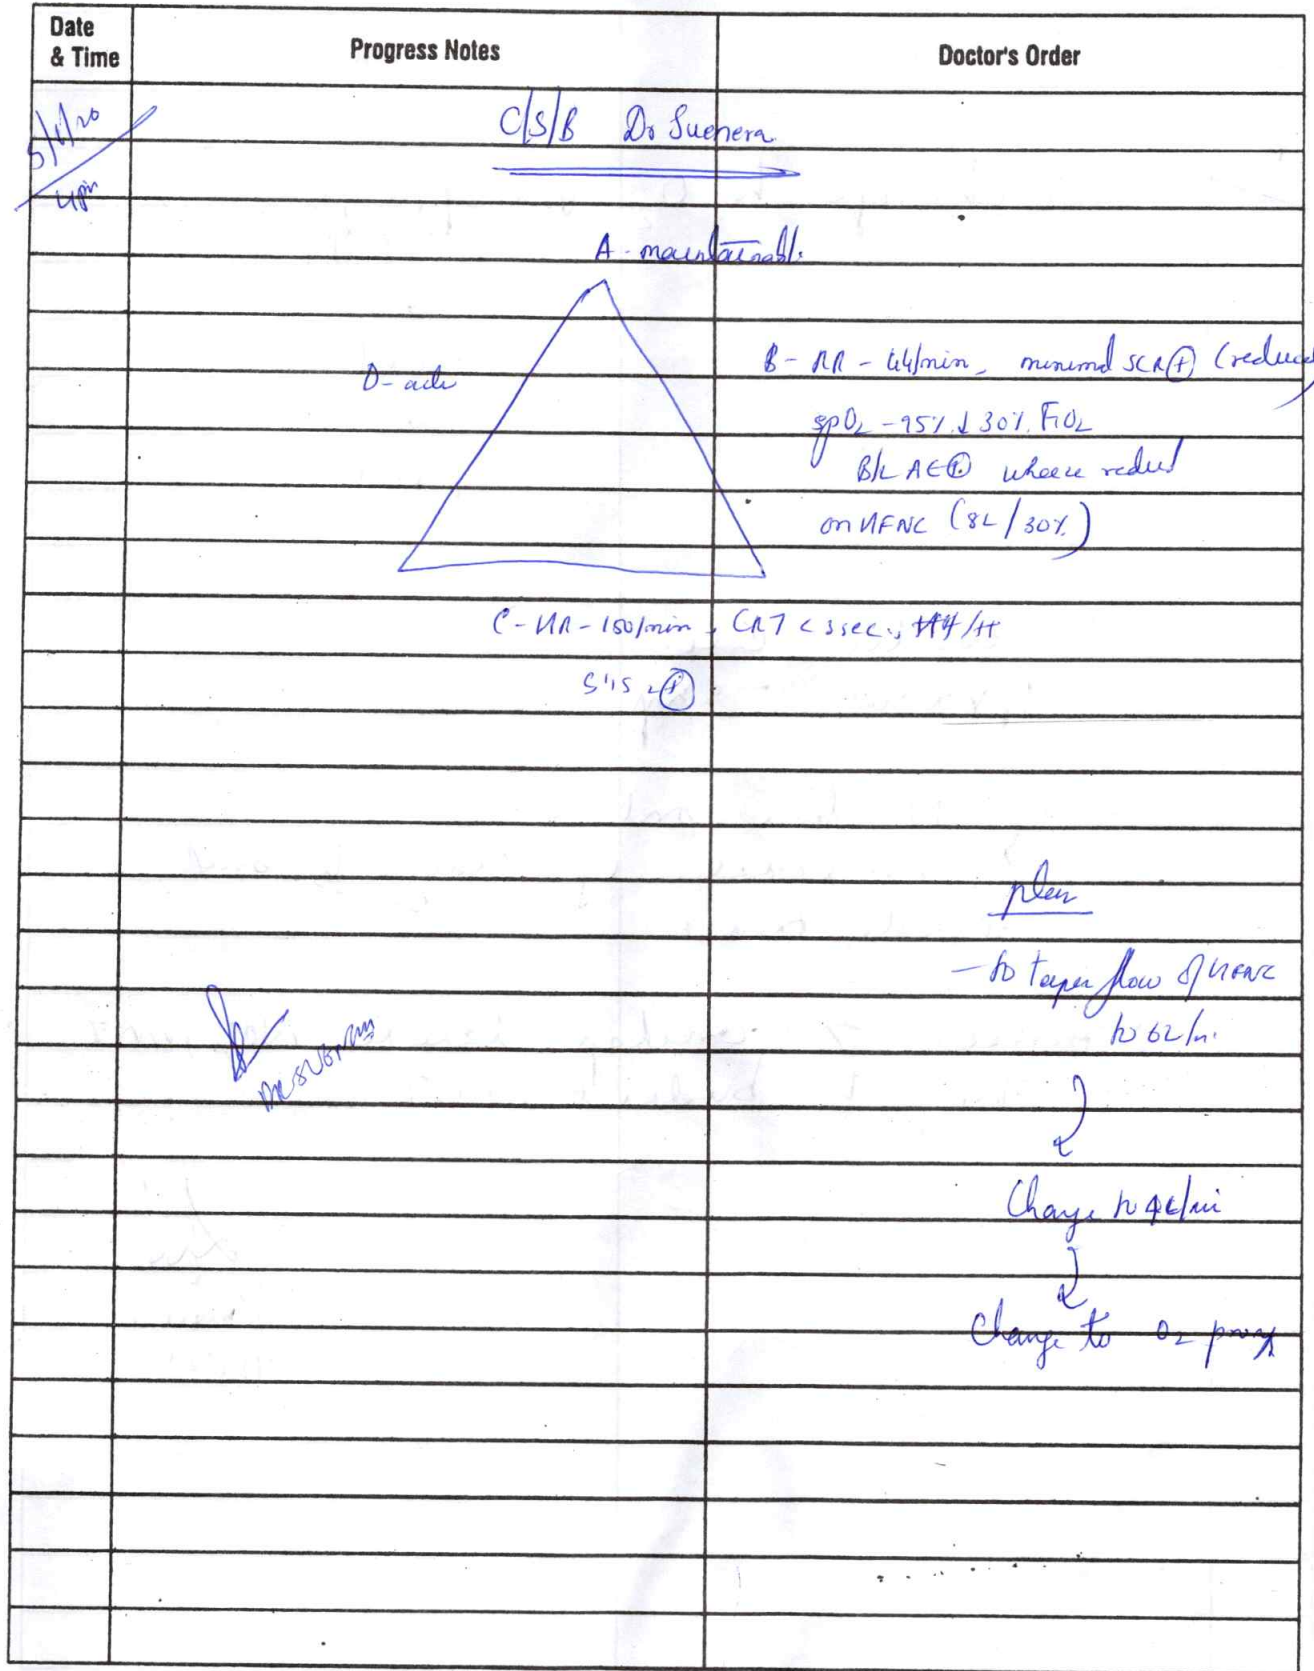 Date & Time
Progress Notes
Doctor's Order
4pm
C/S/B Dr
A - maintainable
D - 
B - RR - 44/min, minimal SCR (+) (reduced)
SpO2 - 95% ↓ 30% FiO2
B/L AE(+) wheeze
on HFNC (8L/30%)
C - HR - 150/min, CRT < 3sec,
S1S2 (+)
plan
- to taper flow of HFNC
to 6L/
Change to 4L/min
Change to O2